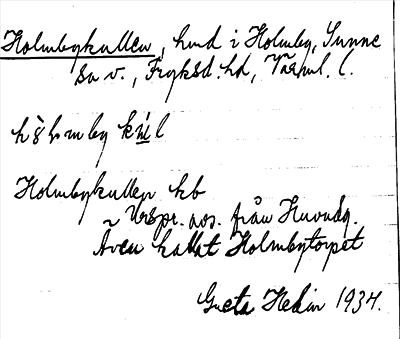 Holmbykullen, hmd i Holmby, Sunne
sn v., Fryksd. hd, Värml. l.
Holmbykullen hb
Urspr. avs. från Huvudg.
Även kallat Holmbytorpet
Greta Hedin 1934.